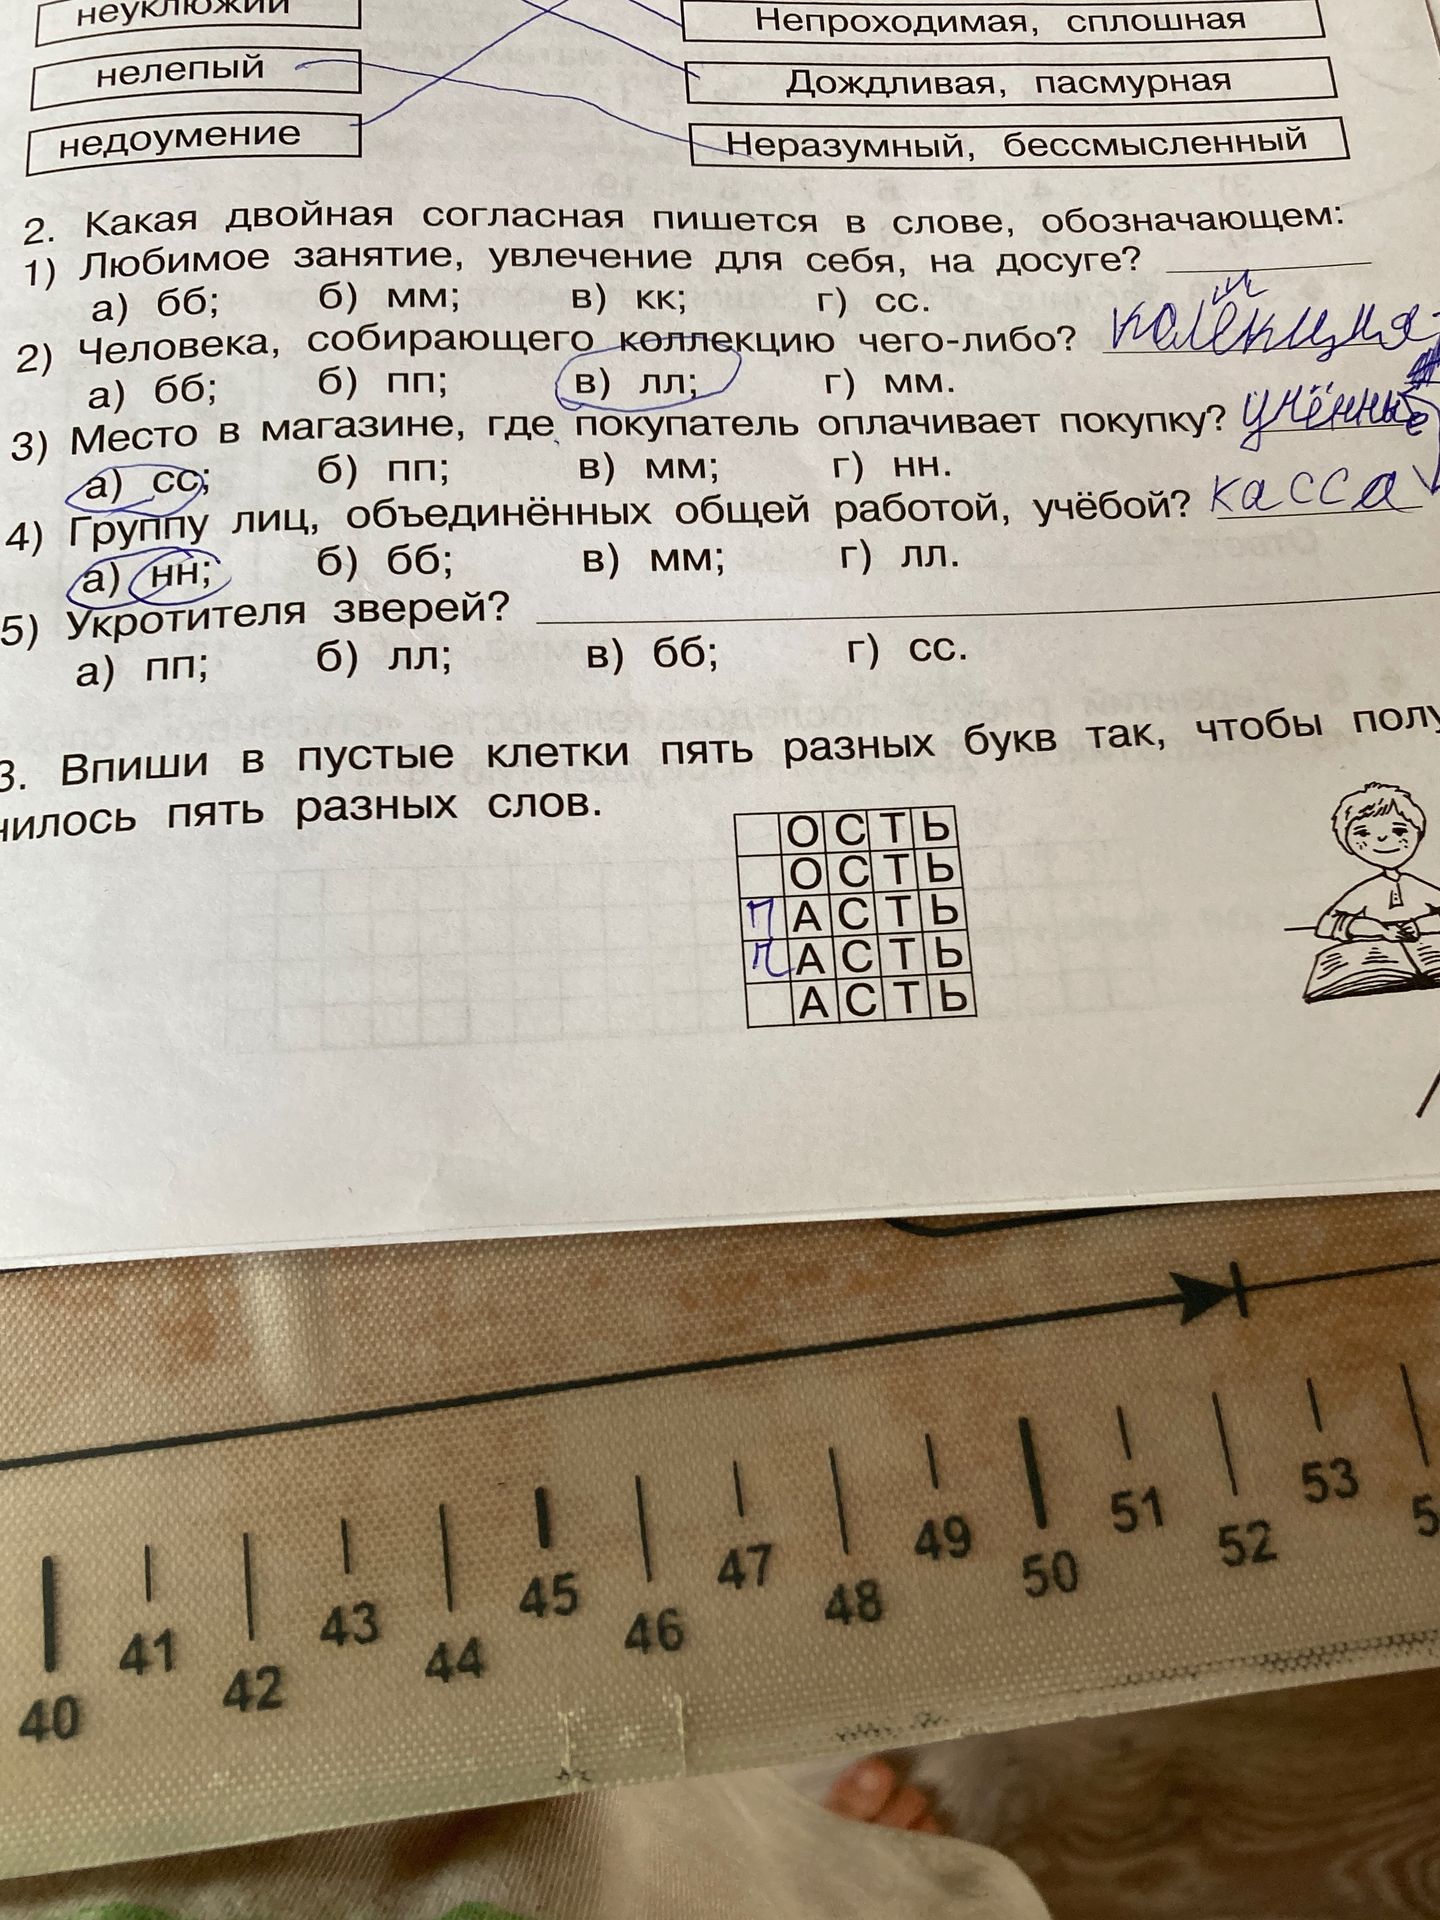 неуклюжий Непроходимая, сплошная
нелепый Дождливая, пасмурная
недоумение Неразумный, бессмысленный
2. Какая двойная согласная пишется в слове, обозначающем:
1) Любимое занятие, увлечение для себя, на досуге?
а) бб; б) мм; в) кк; г) сс.
2) Человека, собирающего коллекцию чего-либо?
а) бб; б) пп; в) лл; г) мм.
3) Место в магазине, где покупатель оплачивает покупку?
а) сс; б) пп; в) мм; г) нн.
4) Группу лиц, объединённых общей работой, учёбой? касса
а) нн; б) бб; в) мм; г) лл.
5) Укротителя зверей?
а) пп; б) лл; в) бб; г) сс.
3. Впиши в пустые клетки пять разных букв так, чтобы полу
чилось пять разных слов.
ОСТЬ
ОСТЬ
ПАСТЬ
АСТЬ
АСТЬ
40 41 42 43 44 45 46 47 48 49 50 51 52 53 5